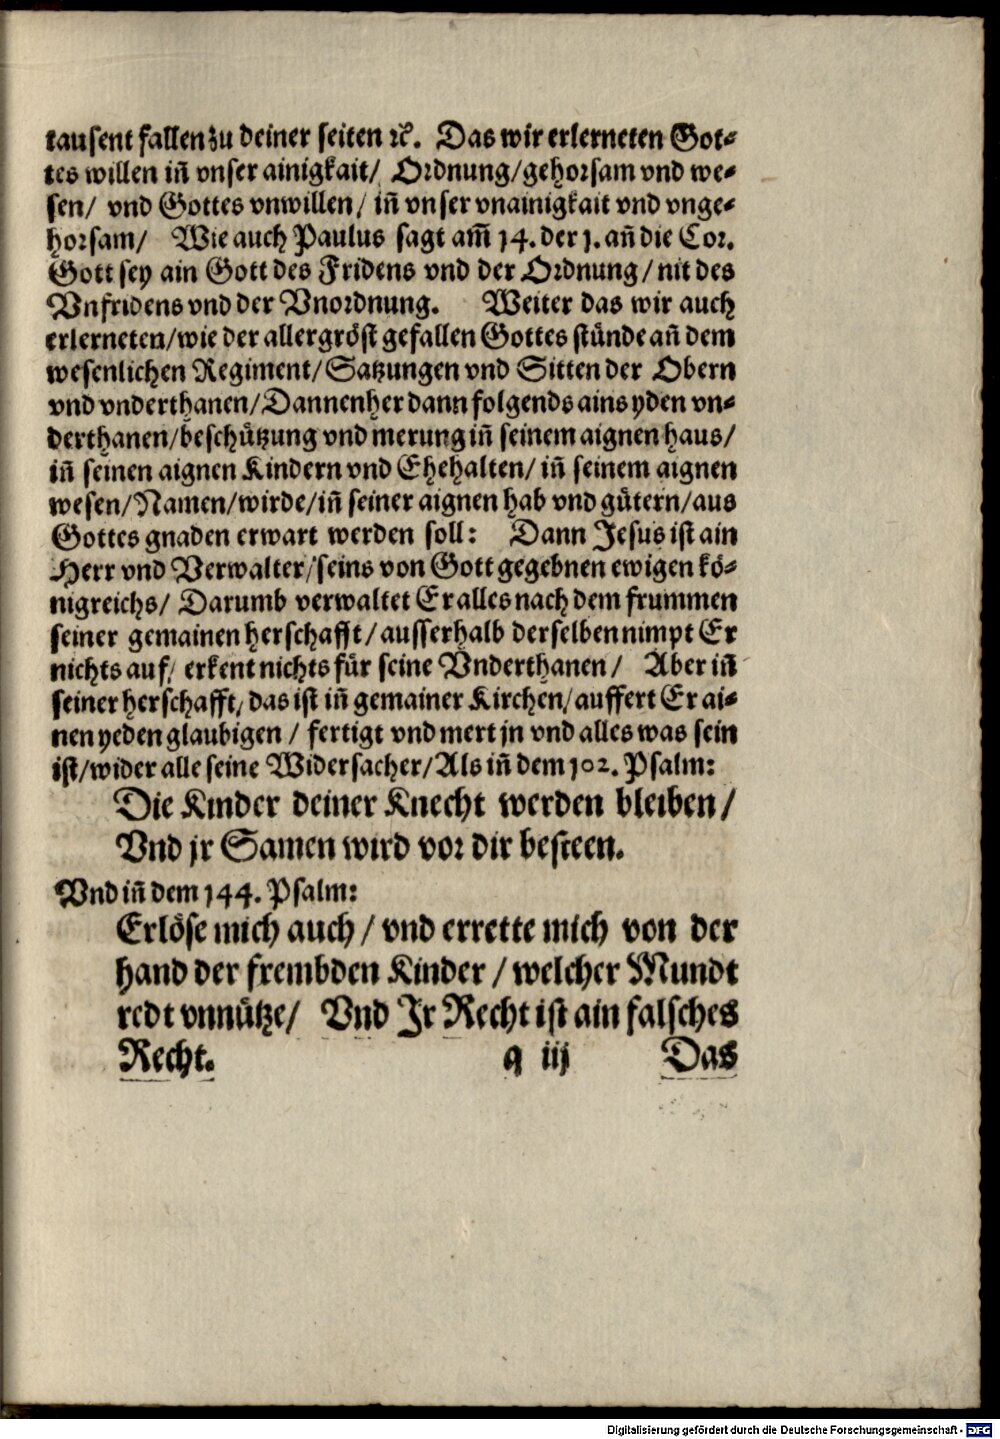 tausent fallen zu deiner seiten ꝛc. Das wir erlerneten Got⸗
tes willen iñ vnser ainigkait/ Ordnung/gehorsam vnd we⸗
sen/ vnd Gottes vnwillen/ iñ vnser vnainigkait vnd vnge⸗
horsam/ Wie auch Paulus sagt am̃ 14. der 1. añ die Cor.
Gott sey ain Gott des Fridens vnd der Ordnung/nit des
Vnfridens vnd der Vnordnung. Weiter das wir auch
erlerneten/wie der allergröst gefallen Gottes stünde añ dem
wesenlichen Regiment/Satzungen vnd Sitten der Obern
vnd vnderthanen/Dannenher dann folgends ains yden vn⸗
derthanen/beschützung vnd merung iñ seinem aignen haus/
iñ seinen aignen Kindern vnd Ehehalten/ iñ seinem aignen
wesen/Namen/wirde/iñ seiner aignen hab vnd gütern/aus
Gottes gnaden erwart werden soll: Dann Jesus ist ain
Herr vnd Verwalter/seins von Gott gegebnen ewigen kö⸗
nigreichs/ Darumb verwaltet Er alles nach dem frummen
seiner gemainen herschafft/ausserhalb derselben nimpt Er
nichts auf/ erkent nichts für seine Vnderthanen/ Aber iñ
seiner herschafft/das ist iñ gemainer Kirchen/auffert Er ai⸗
nen yeden glaubigen/ fertigt vnd mert jn vnd alles was sein
ist/wider alle seine Widersacher/Als iñ dem 102. Psalm:
Die Kinder deiner Knecht werden bleiben/
Vnd jr Samen wird vor dir besteen.
Vnd iñ dem 144. Psalm:
Erlöse mich auch/ vnd errette mich von der
hand der frembden Kinder/welcher Mundt
redt vnnütze/ Vnd Jr Recht ist ain falsches
Recht. q iij Das
Digitalisierung gefördert durch die Deutsche Forschungsgemeinschaft - DFG